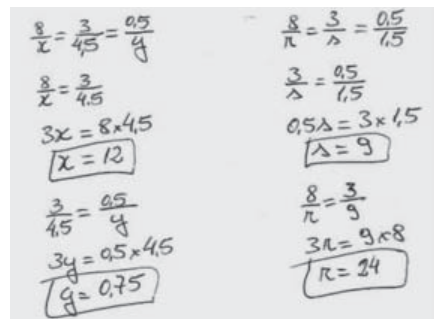 8/x = 3/4,5 = 0,5/y
8/x = 3/4.5
3x = 8×4,5
x = 12
3/4,5 = 0,5/y
3y = 0,5×4,5
y = 0,75
8/r = 3/s = 0,5/1,5
3/s = 0,5/1,5
0,5s = 3×1,5
s = 9
8/r = 3/9
3r = 9×8
r = 24